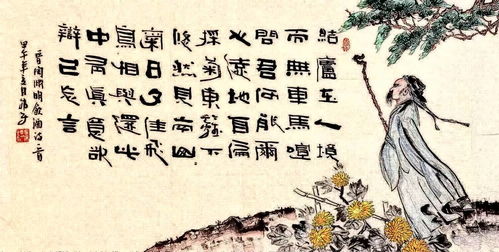 結廬在人境
而無車馬喧
問君何能爾
心遠地自偏
採菊東籬下
悠然見南山
氣日夕佳飛
鳥相與還此
中有眞意欲
辯已忘言
晉陶淵明飲酒詩
甲午年